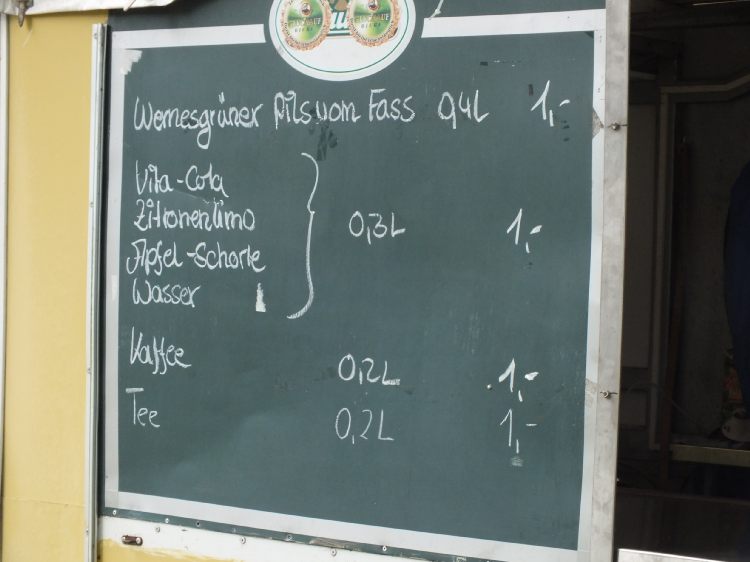 Wernesgrüner Pils vom Fass 0,4L 1,-
Vita-Cola
Zitronenlimo 0,3L 1,-
Apfel-Schorle
Wasser
Kaffee 0,2L 1,-
Tee 0,2L 1,-